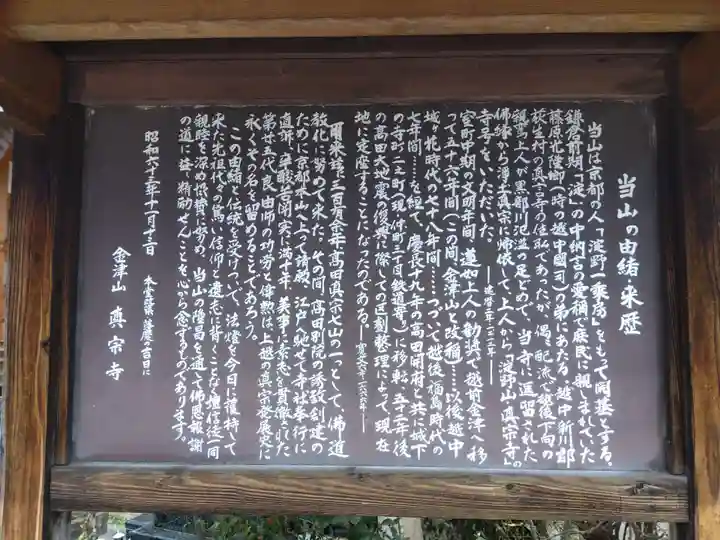 当山の由緒・来歴
当山は京都の人「淀野一乗房」をもって開基とする。
鎌倉前期「淀」の中納言の愛称で庶民に親しまれていた
藤原光隆郷(時の越中國司)の弟にあたる。越中新川郡
荻生村の真言寺の住職であったが、偶々配流で越後下向の
親鸞上人が黒部川氾濫の足どめで、当寺に逗留された
佛縁から浄土真宗に帰依して、上人から「淀野山真宗寺」の
寺号をいただいた。
室町中期の文明年間、蓮如上人の勧奨で越前金津へ移
って五十六年間(この間、金津山と改稱)……以後越中
城ヶ花時代の七十八年間……つづいて越後福島時代の
七年間……を経て、慶長十九年の高田開府と共に城下
の寺町二之町(現・仲町三丁目鉄道寄り)に移転、五十二年後
の高田大地震の復興に際しての区割整理によって、現在
地に定座することになったのである。
爾来茲に三百有余年高田真宗七山の一つとして、佛道
教化に努めて来た。その間、高田別院の誘致創建の
ために京都本山へ上って請願、江戸へ馳せて寺社奉行に
直訴、辛酸苦闘実に満十年、美事に素志を貫徹された
第廿五代良由師の功労と偉勲は、上越の真宗発展史に
永くその名を留めるであろう。
この由緒と伝統を受けついで、法燈を今日に護持して
来た先祖代々の篤い信仰と遺志に背くことなく、檀信徒一同
親睦を深め協賛に努め、当山の隆昌を通じて佛恩報謝
の道に益々精励せんことを心から念ずるものであります。
昭和六十三年十一月廿三日
本堂落慶の吉日に
金津山 真宗寺